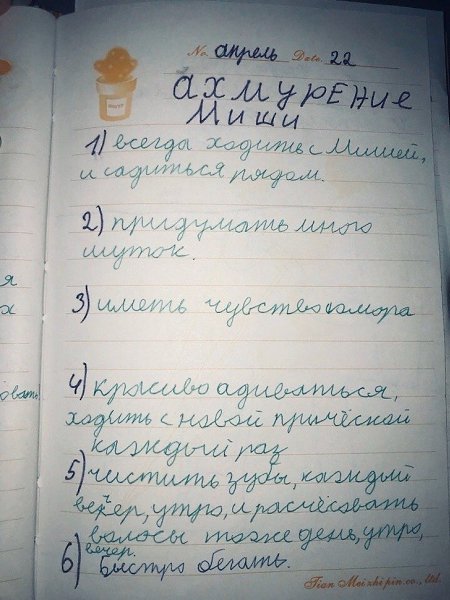 No. апрель Date. 22
ахмурение
Миши
1) всегда ходить с Мишей,
и садиться рядом.
2) придумать много
шуток.
3) иметь чувство юмора
4) красиво адиваться,
ходить с новой причёской
каждый раз
5) чистить зубы, каждый
вечер, утро, и расчёсовать
волосы тоже день, утро,
вечер.
6) Быстро бегать.
я
х
овать
Tian Meizhipin.co., ltd.